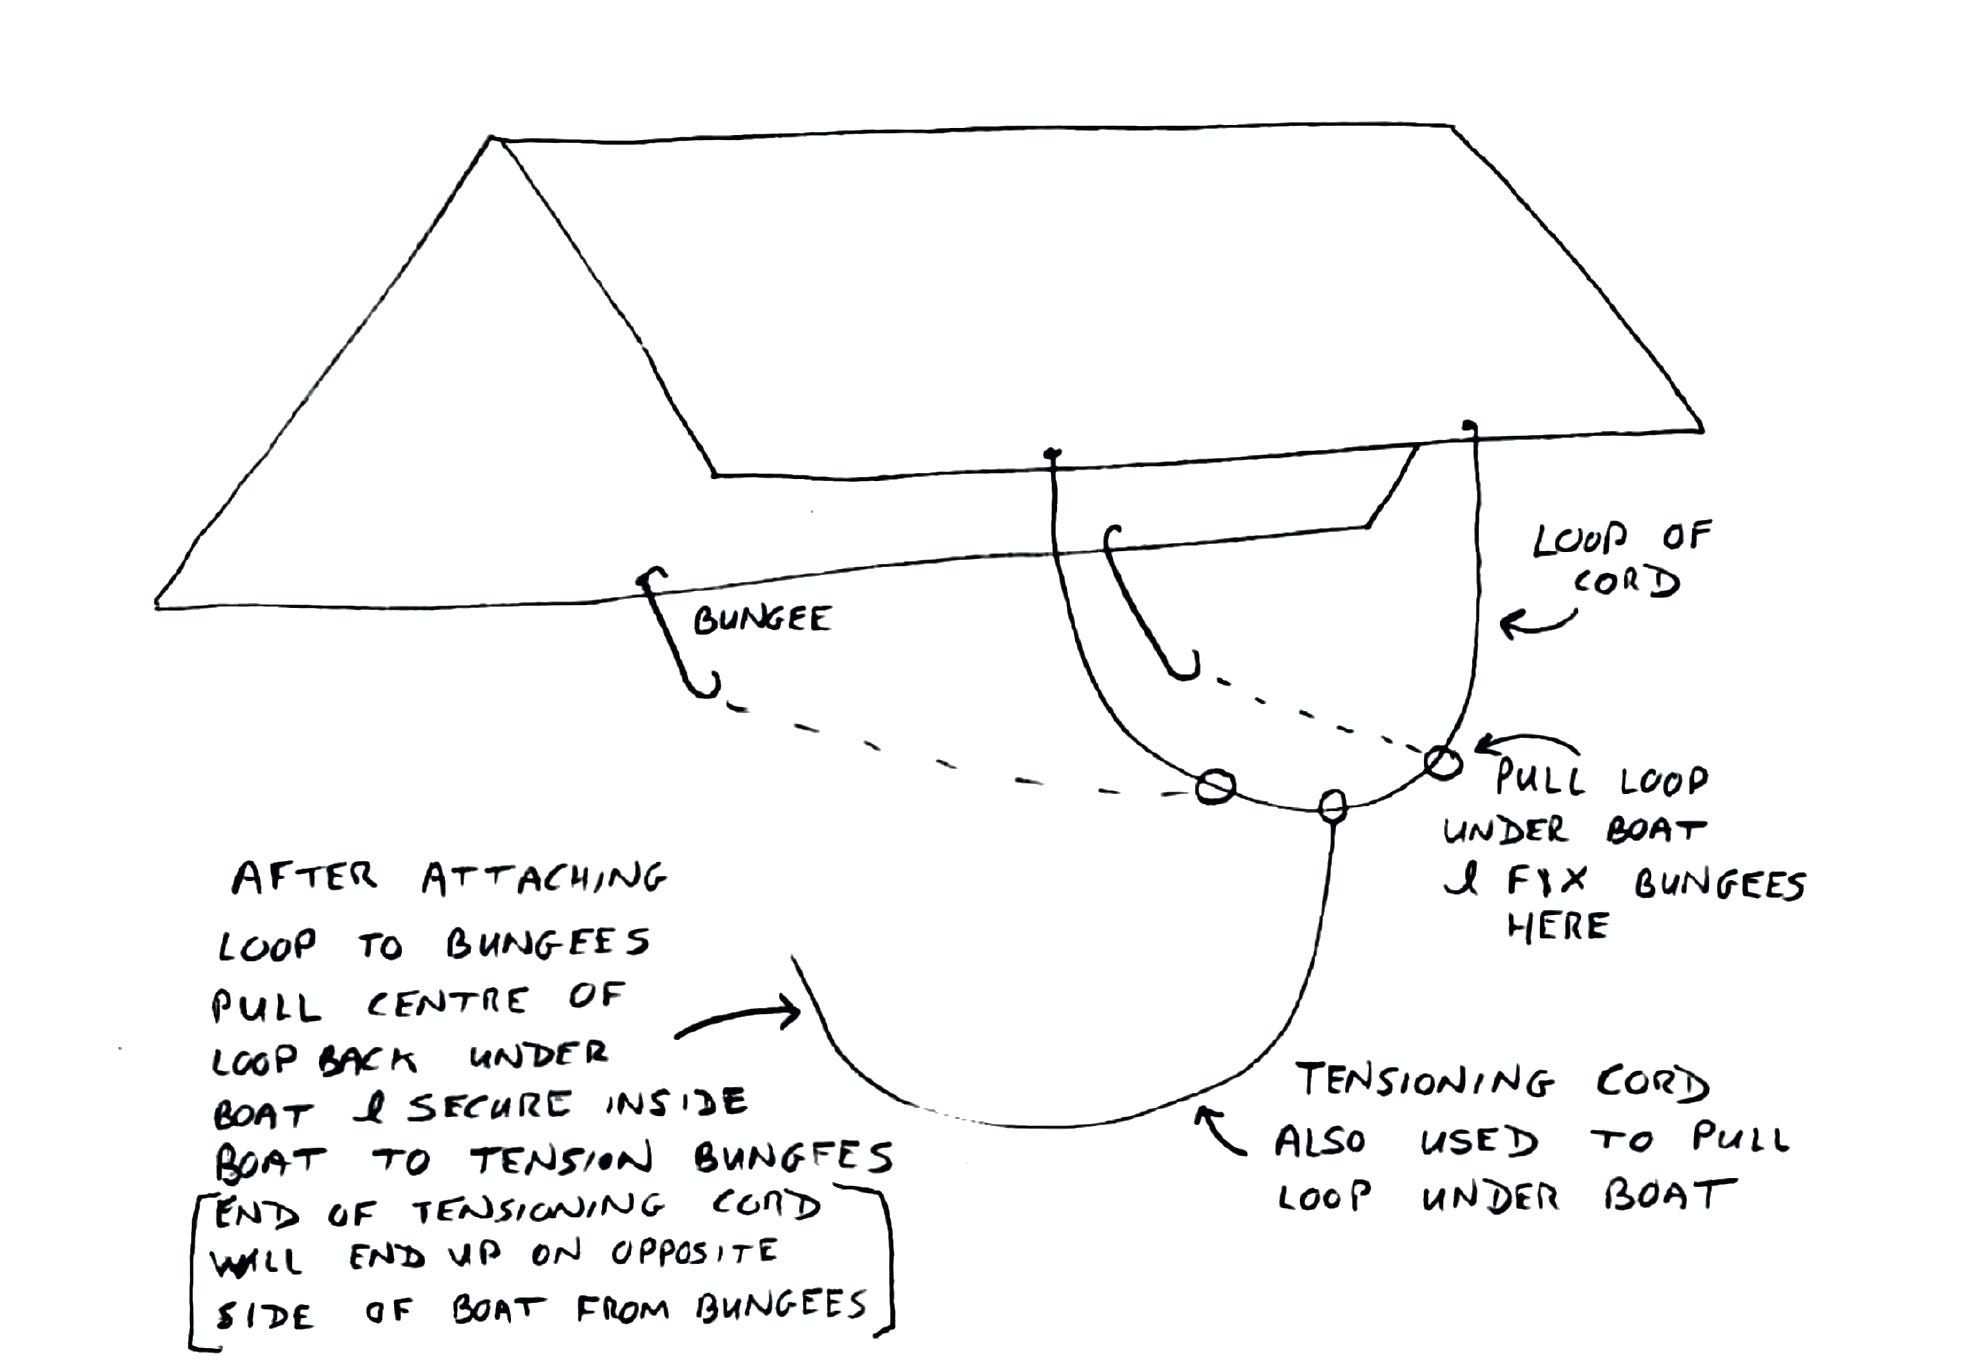 BUNGEE
LOOP OF
CORD
PULL LOOP
UNDER BOAT
& FIX BUNGEES
HERE
AFTER ATTACHING
LOOP TO BUNGEES
PULL CENTRE OF
LOOP BACK UNDER
BOAT & SECURE INSIDE
BOAT TO TENSION BUNGEES
[END OF TENSIONING CORD
WILL END UP ON OPPOSITE
SIDE OF BOAT FROM BUNGEES]
TENSIONING CORD
ALSO USED TO PULL
LOOP UNDER BOAT